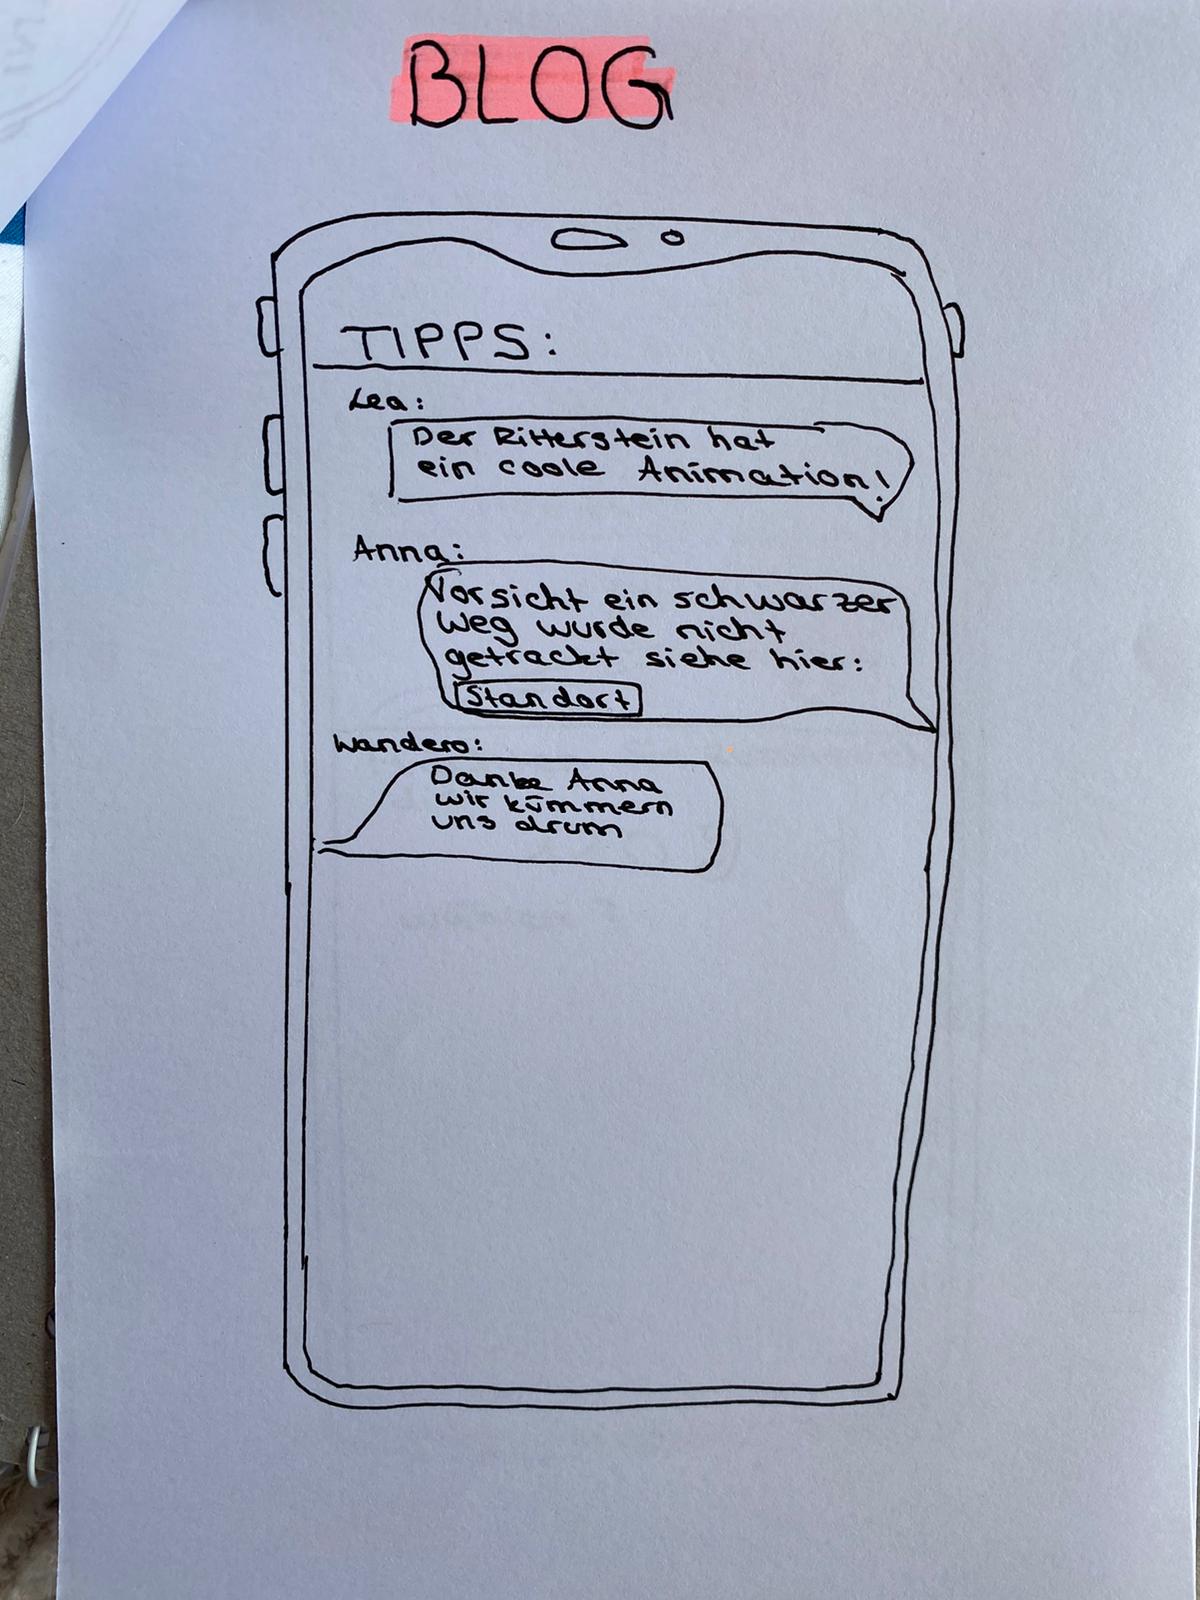 BLOG
TIPPS:
Lea:
Der Ritterstein hat
ein coole Animation!
Anna:
Vorsicht ein schwarzer
Weg wurde nicht
getrackt siehe hier:
Standort
Wandero:
Danke Anna
wir kümmern
uns drum